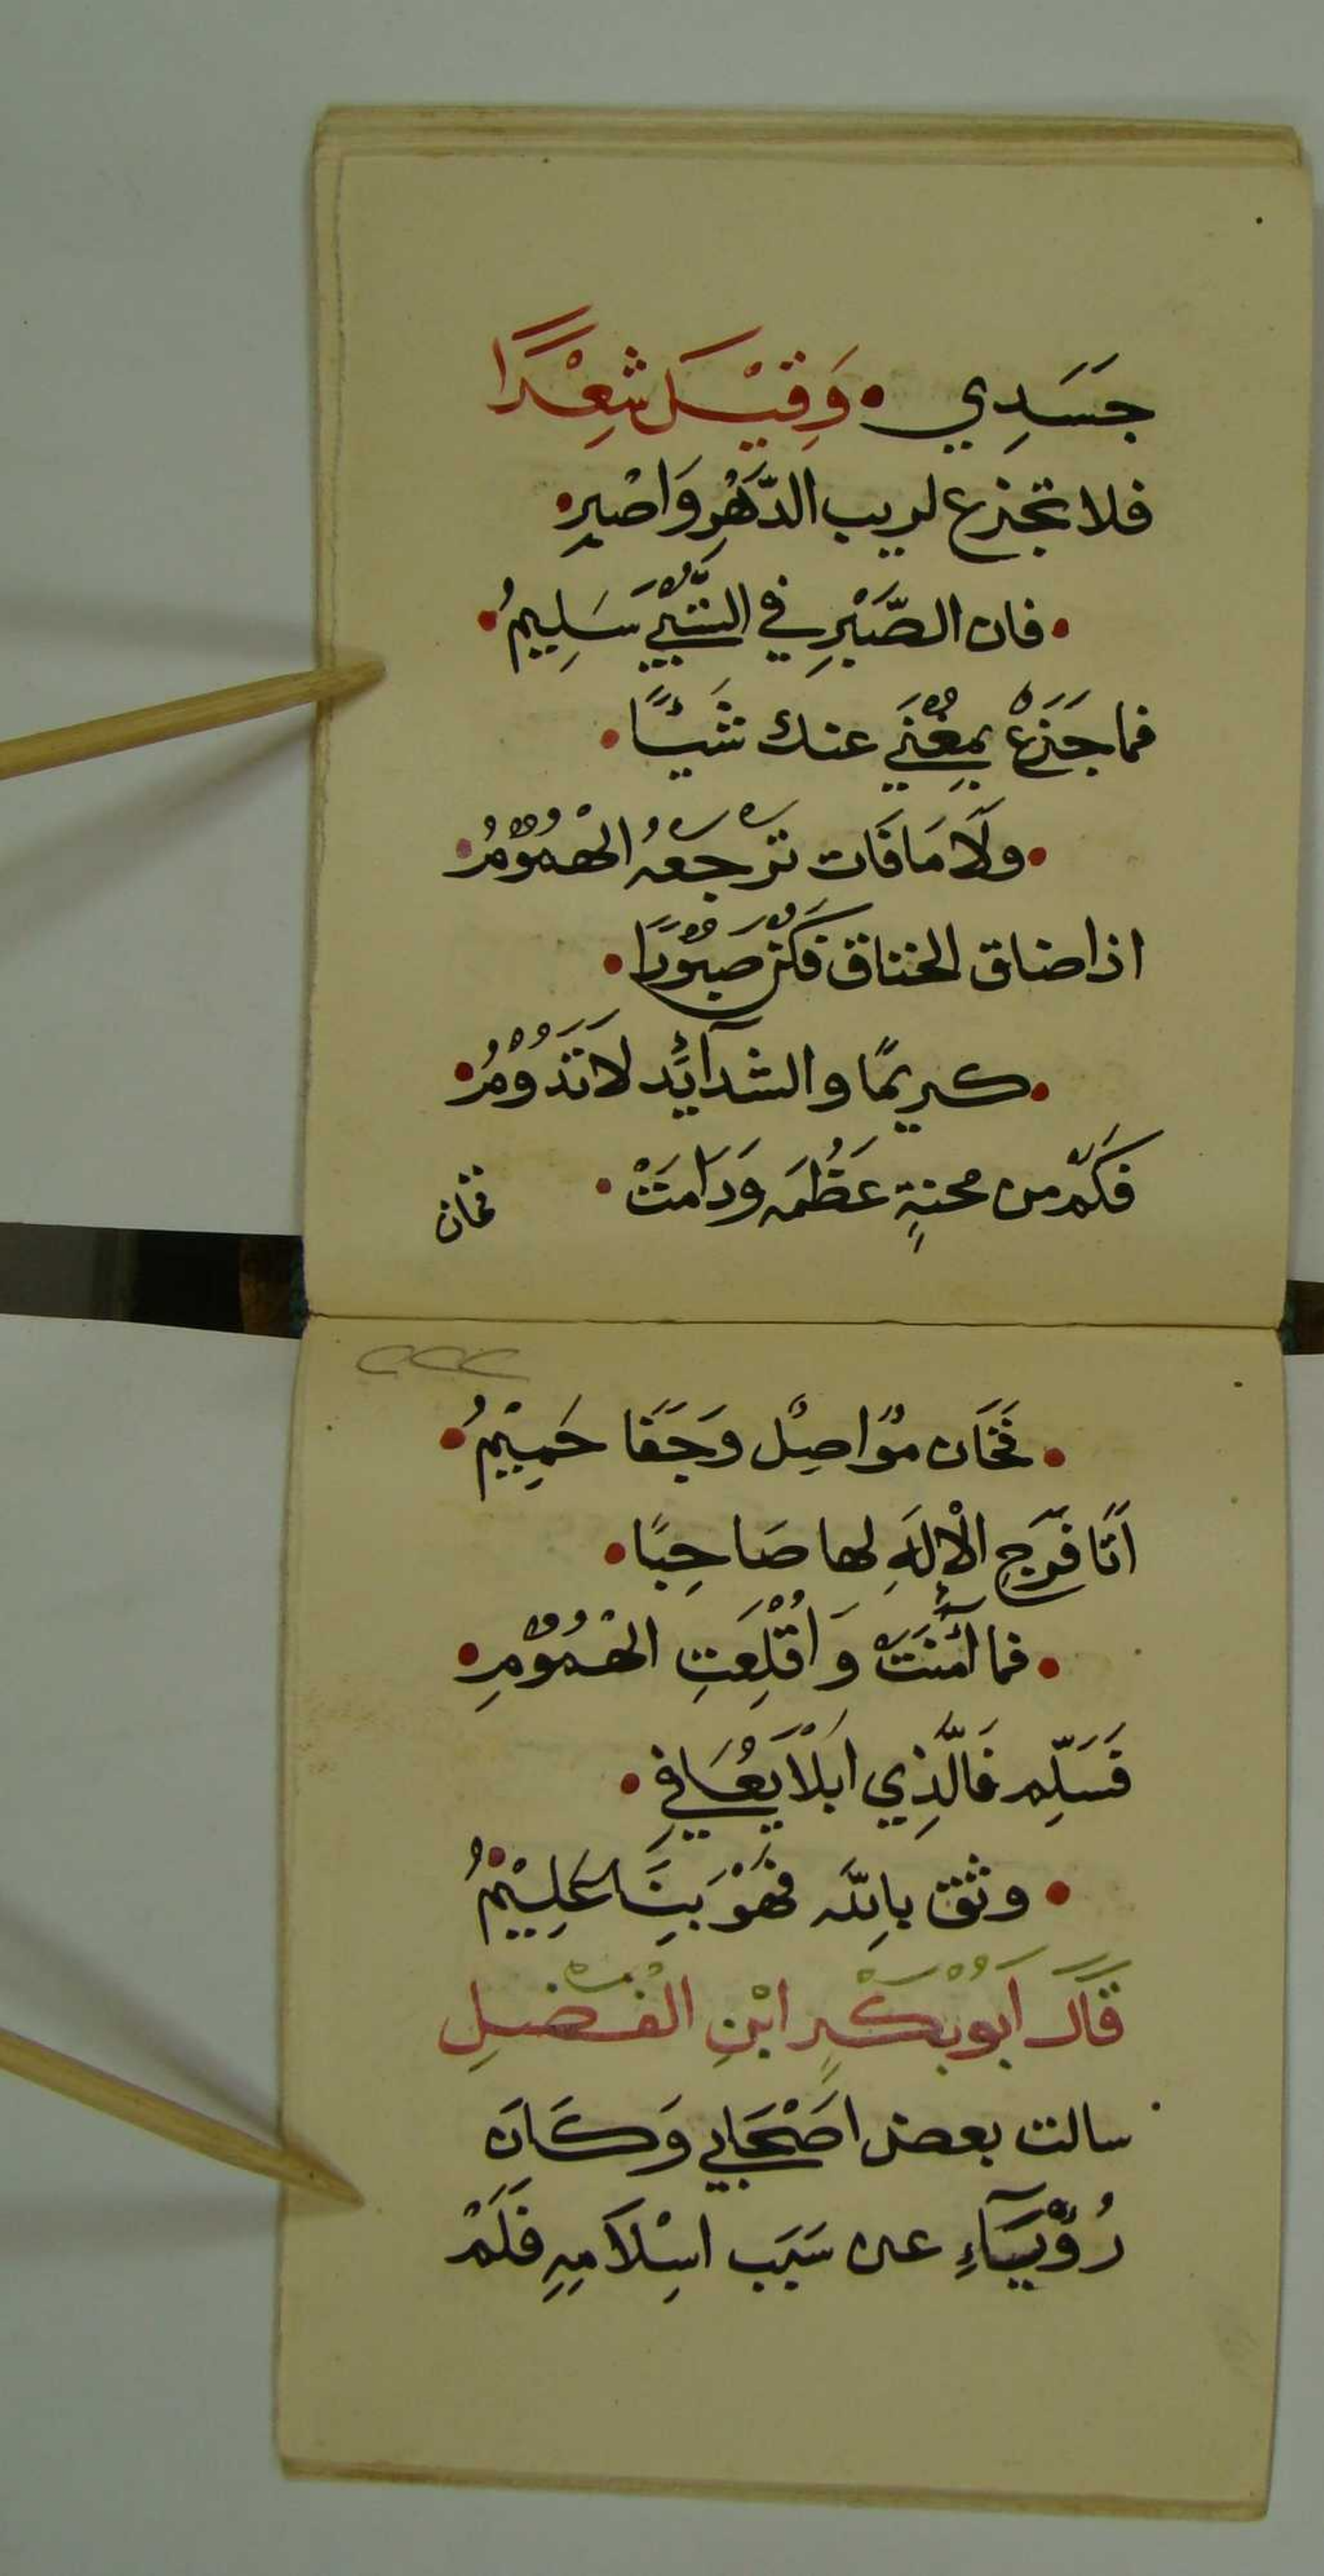 جَسَدِي • وَقِيْلَ شِعْرًا
فلا تجزع لريب الدَّهْرِ وَاصْبِر •
• فان الصَّبْرِ في سَلِيمُ •
فما جَزَعْ بِمُغْنِي عنك شَيْئًا •
• وَلَا مَا فَات تَرْجِعْهُ الْهُمُوْمُ •
اذا ضاق الخناق فَكُنْ صَبُوْرًا •
• كريمًا والشدآئِد لَا تَدُوْمُ •
فَكَمْ من محنةٍ عَظُمَه وَدَامَتْ •
فخان
٢٢٢
• فَخَان مُوَاصِل وَجَفَا حَمِيْمُ •
اَتَا فَرَجِ الْإِلَهِ لها صَاحِبًا •
• فما أَمنَتْ وَاُقْلِعَتِ الْهُمُوْمِ •
فَسَلِّم فَالَّذِي اَبْلَا يُعَافِي •
• وثق بِاللّه فَهْوَ بِنَا عَلِيْمُ •
قَالَ اَبُوْ بَكْرِ ابْنِ الْفَضْلِ
سالت بعض اصْحَابي وَكَان
رُؤْيَسَآءِ عن سَبَب اسْلَامِهِ فَلَمْ